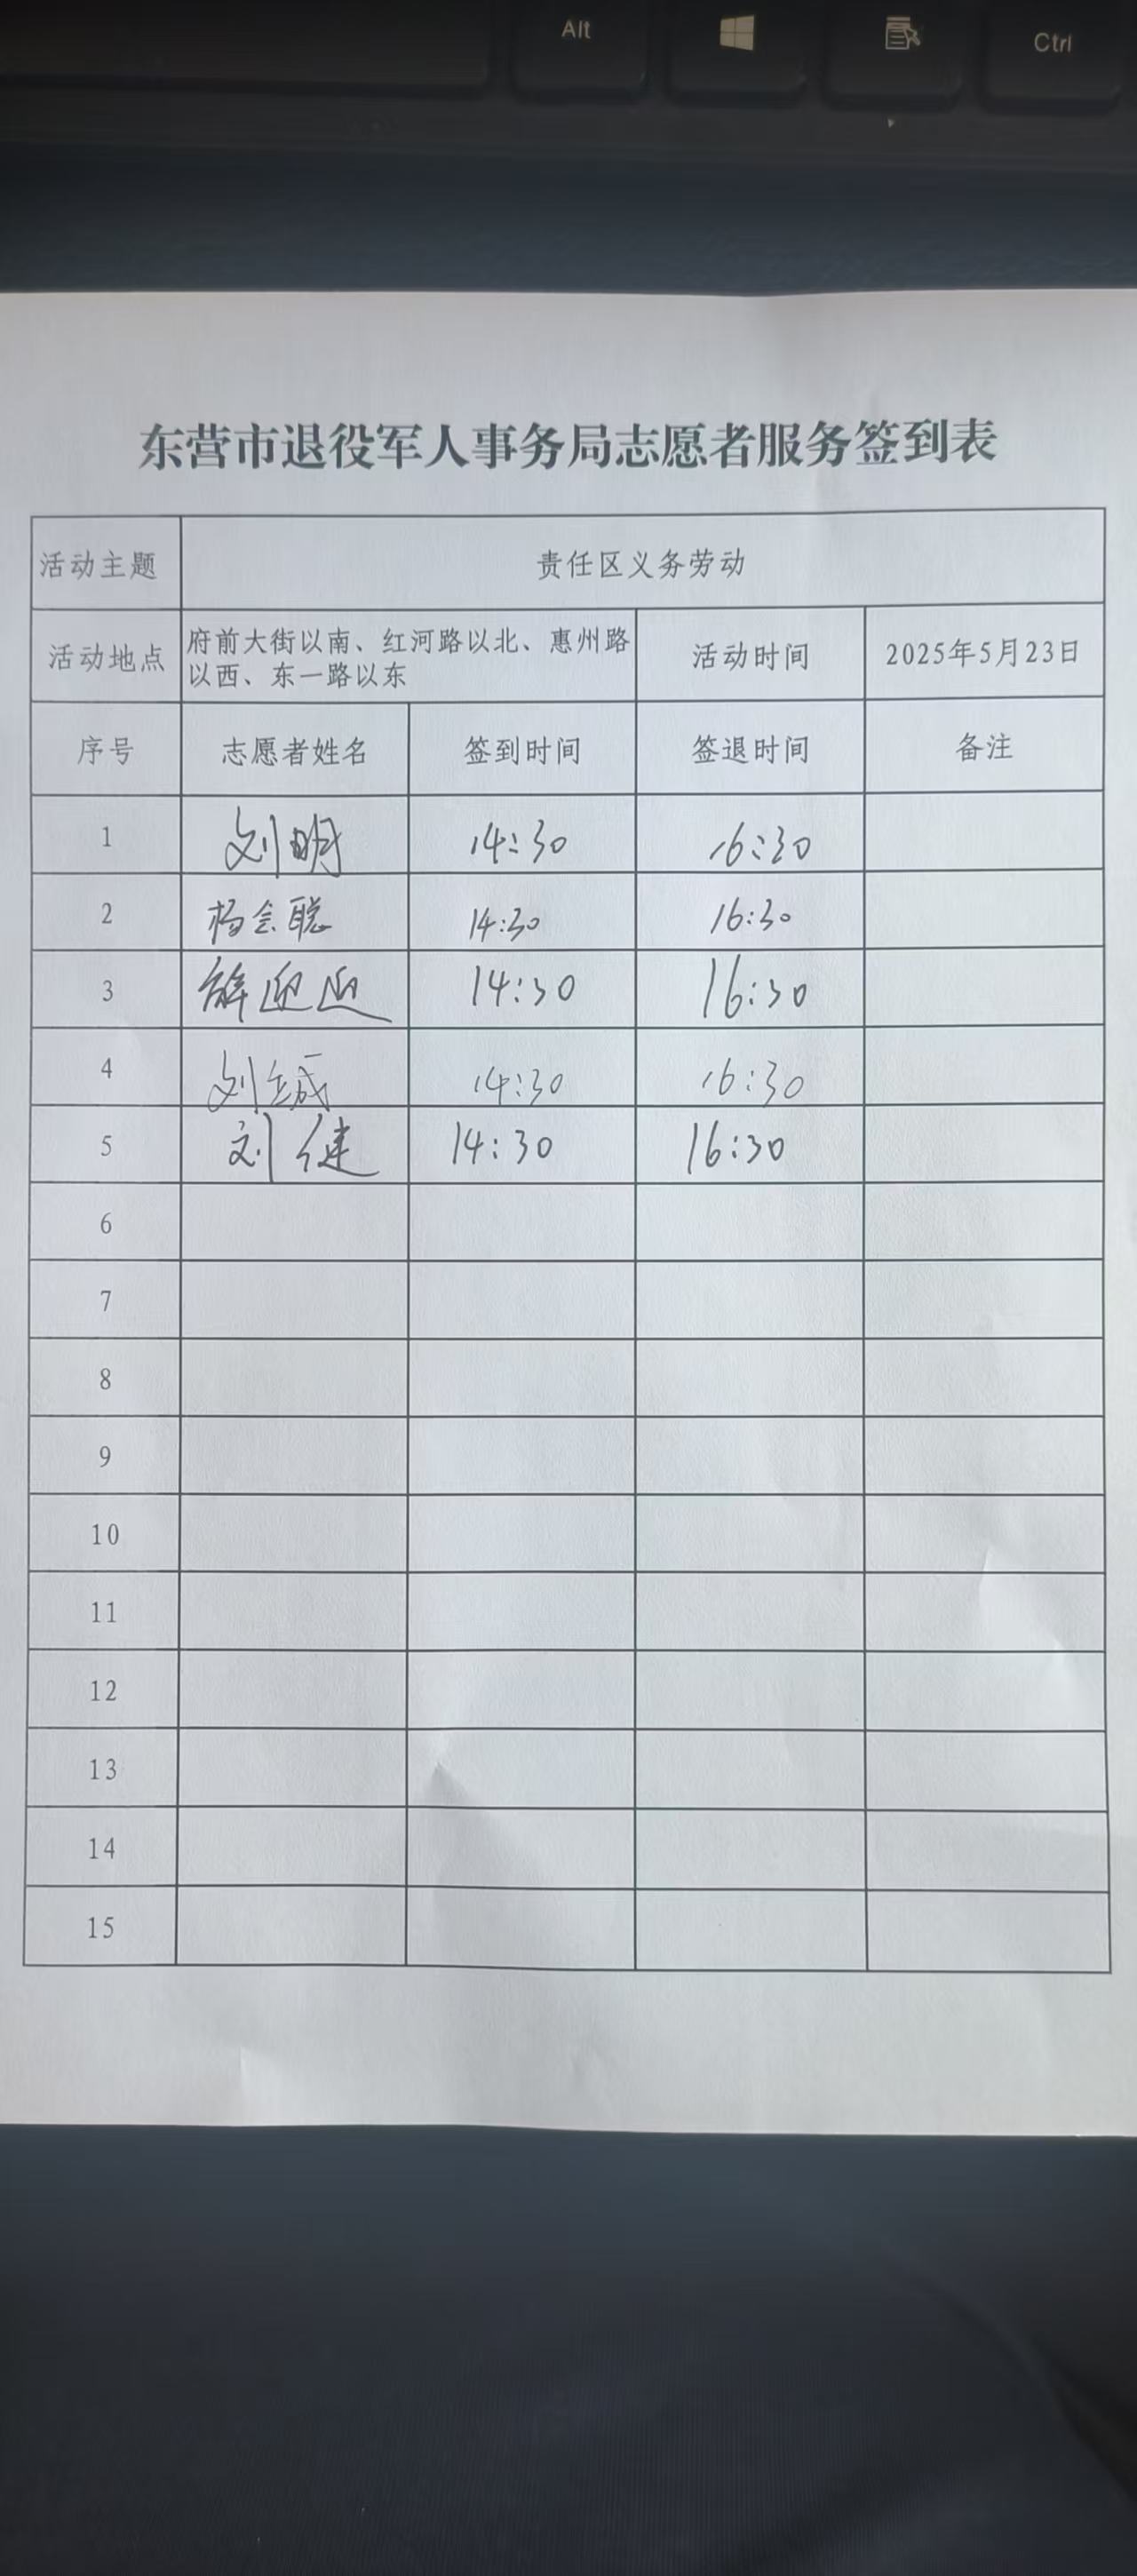 Alt
Ctrl
东营市退役军人事务局志愿者服务签到表
活动主题 责任区义务劳动
活动地点 府前大街以南、红河路以北、惠州路以西、东一路以东 活动时间 2025年5月23日
序号 志愿者姓名 签到时间 签退时间 备注
1 刘明 14:30 16:30
2 杨会聪 14:30 16:30
3 薛迎迎 14:30 16:30
4 刘 14:30 16:30
5 刘健 14:30 16:30
6
7
8
9
10
11
12
13
14
15